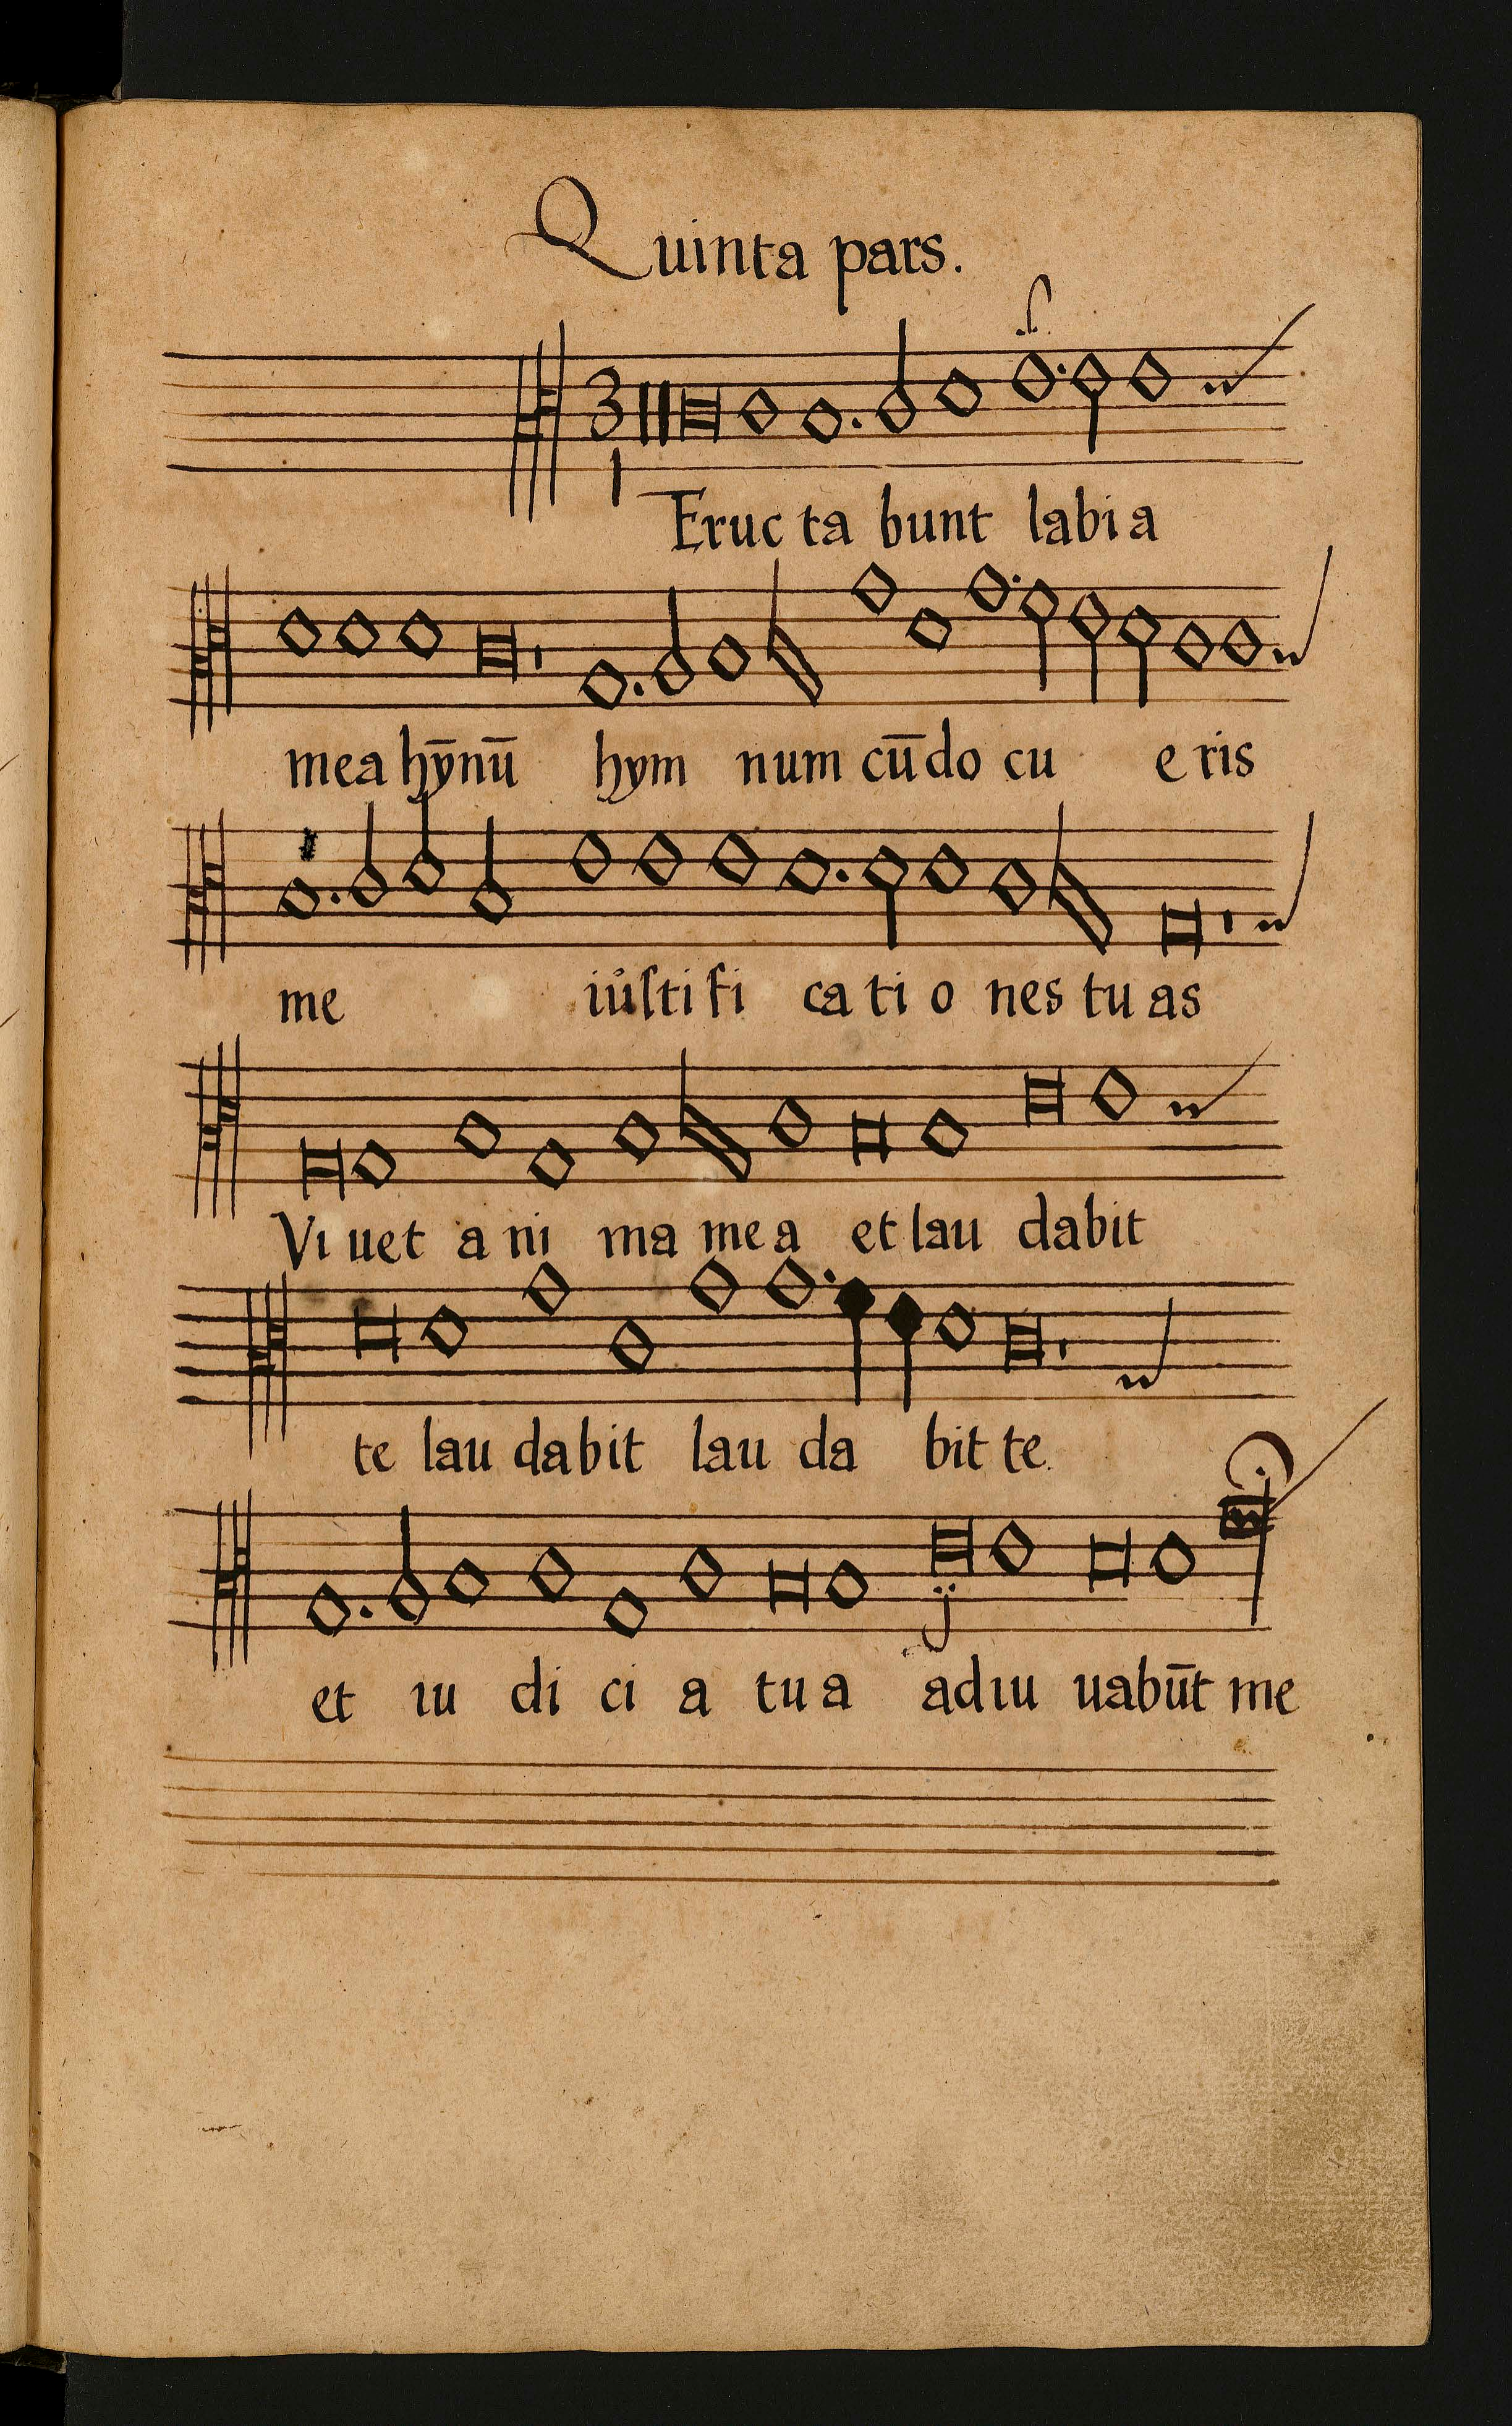 Quinta pars.
3
1
Eruc ta bunt labi a
mea hȳnū hym num cūdo cu e ris
me iůſti fi ca ti o nes tu as
Vi uet a ni ma me a et lau dabit
te lau dabit lau da bit te.
et iu di ci a tu a ad iu uabūt me